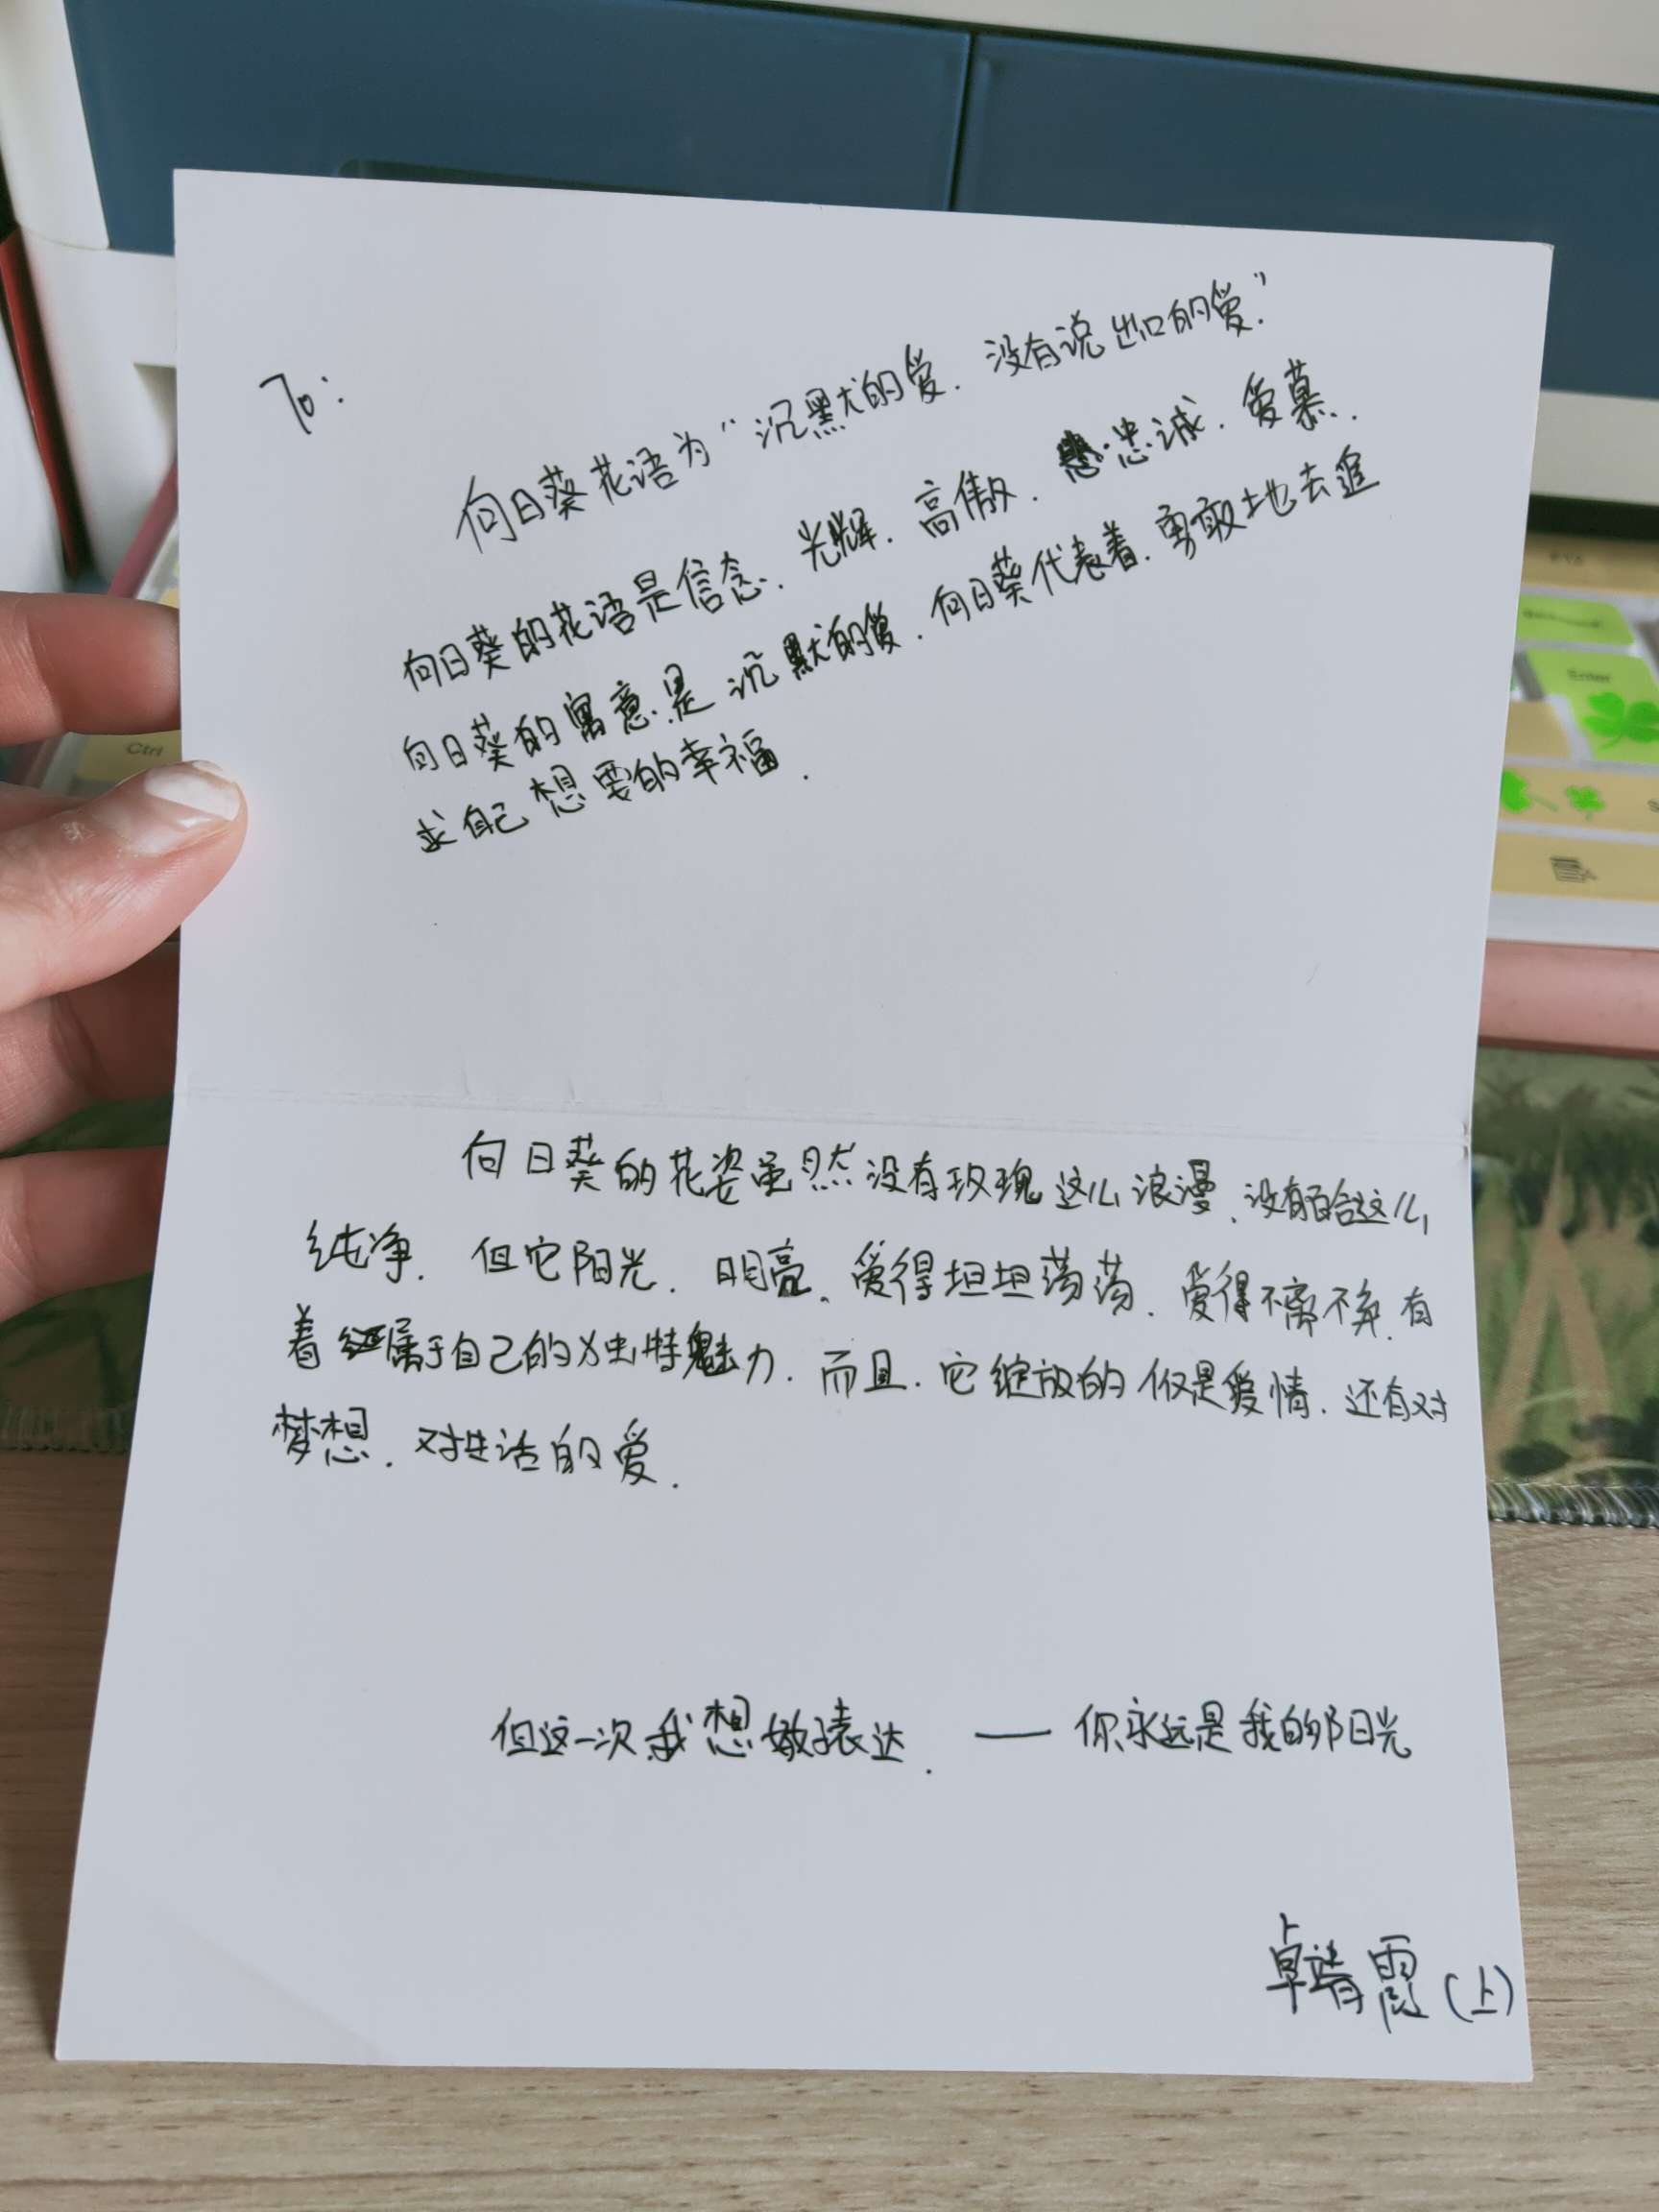 To:
向日葵花语为“沉默的爱.没有说出口的爱.”
向日葵的花语是信念.光辉.高傲.忠诚.爱慕.
向日葵的寓意是沉默的爱.向日葵代表着.勇敢地去追
求自己想要的幸福.
向日葵的花姿虽然没有玫瑰这么浪漫、没有百合这么
纯净.但它阳光.明亮.爱得坦坦荡荡.爱得不离不弃.有
着属于自己的独特魅力.而且.它绽放的不仅是爱情.还有对
梦想.对生活的爱.
但这一次我想敢表达.——你永远是我的阳光
卓靖霞(上)
Ctrl
Enter